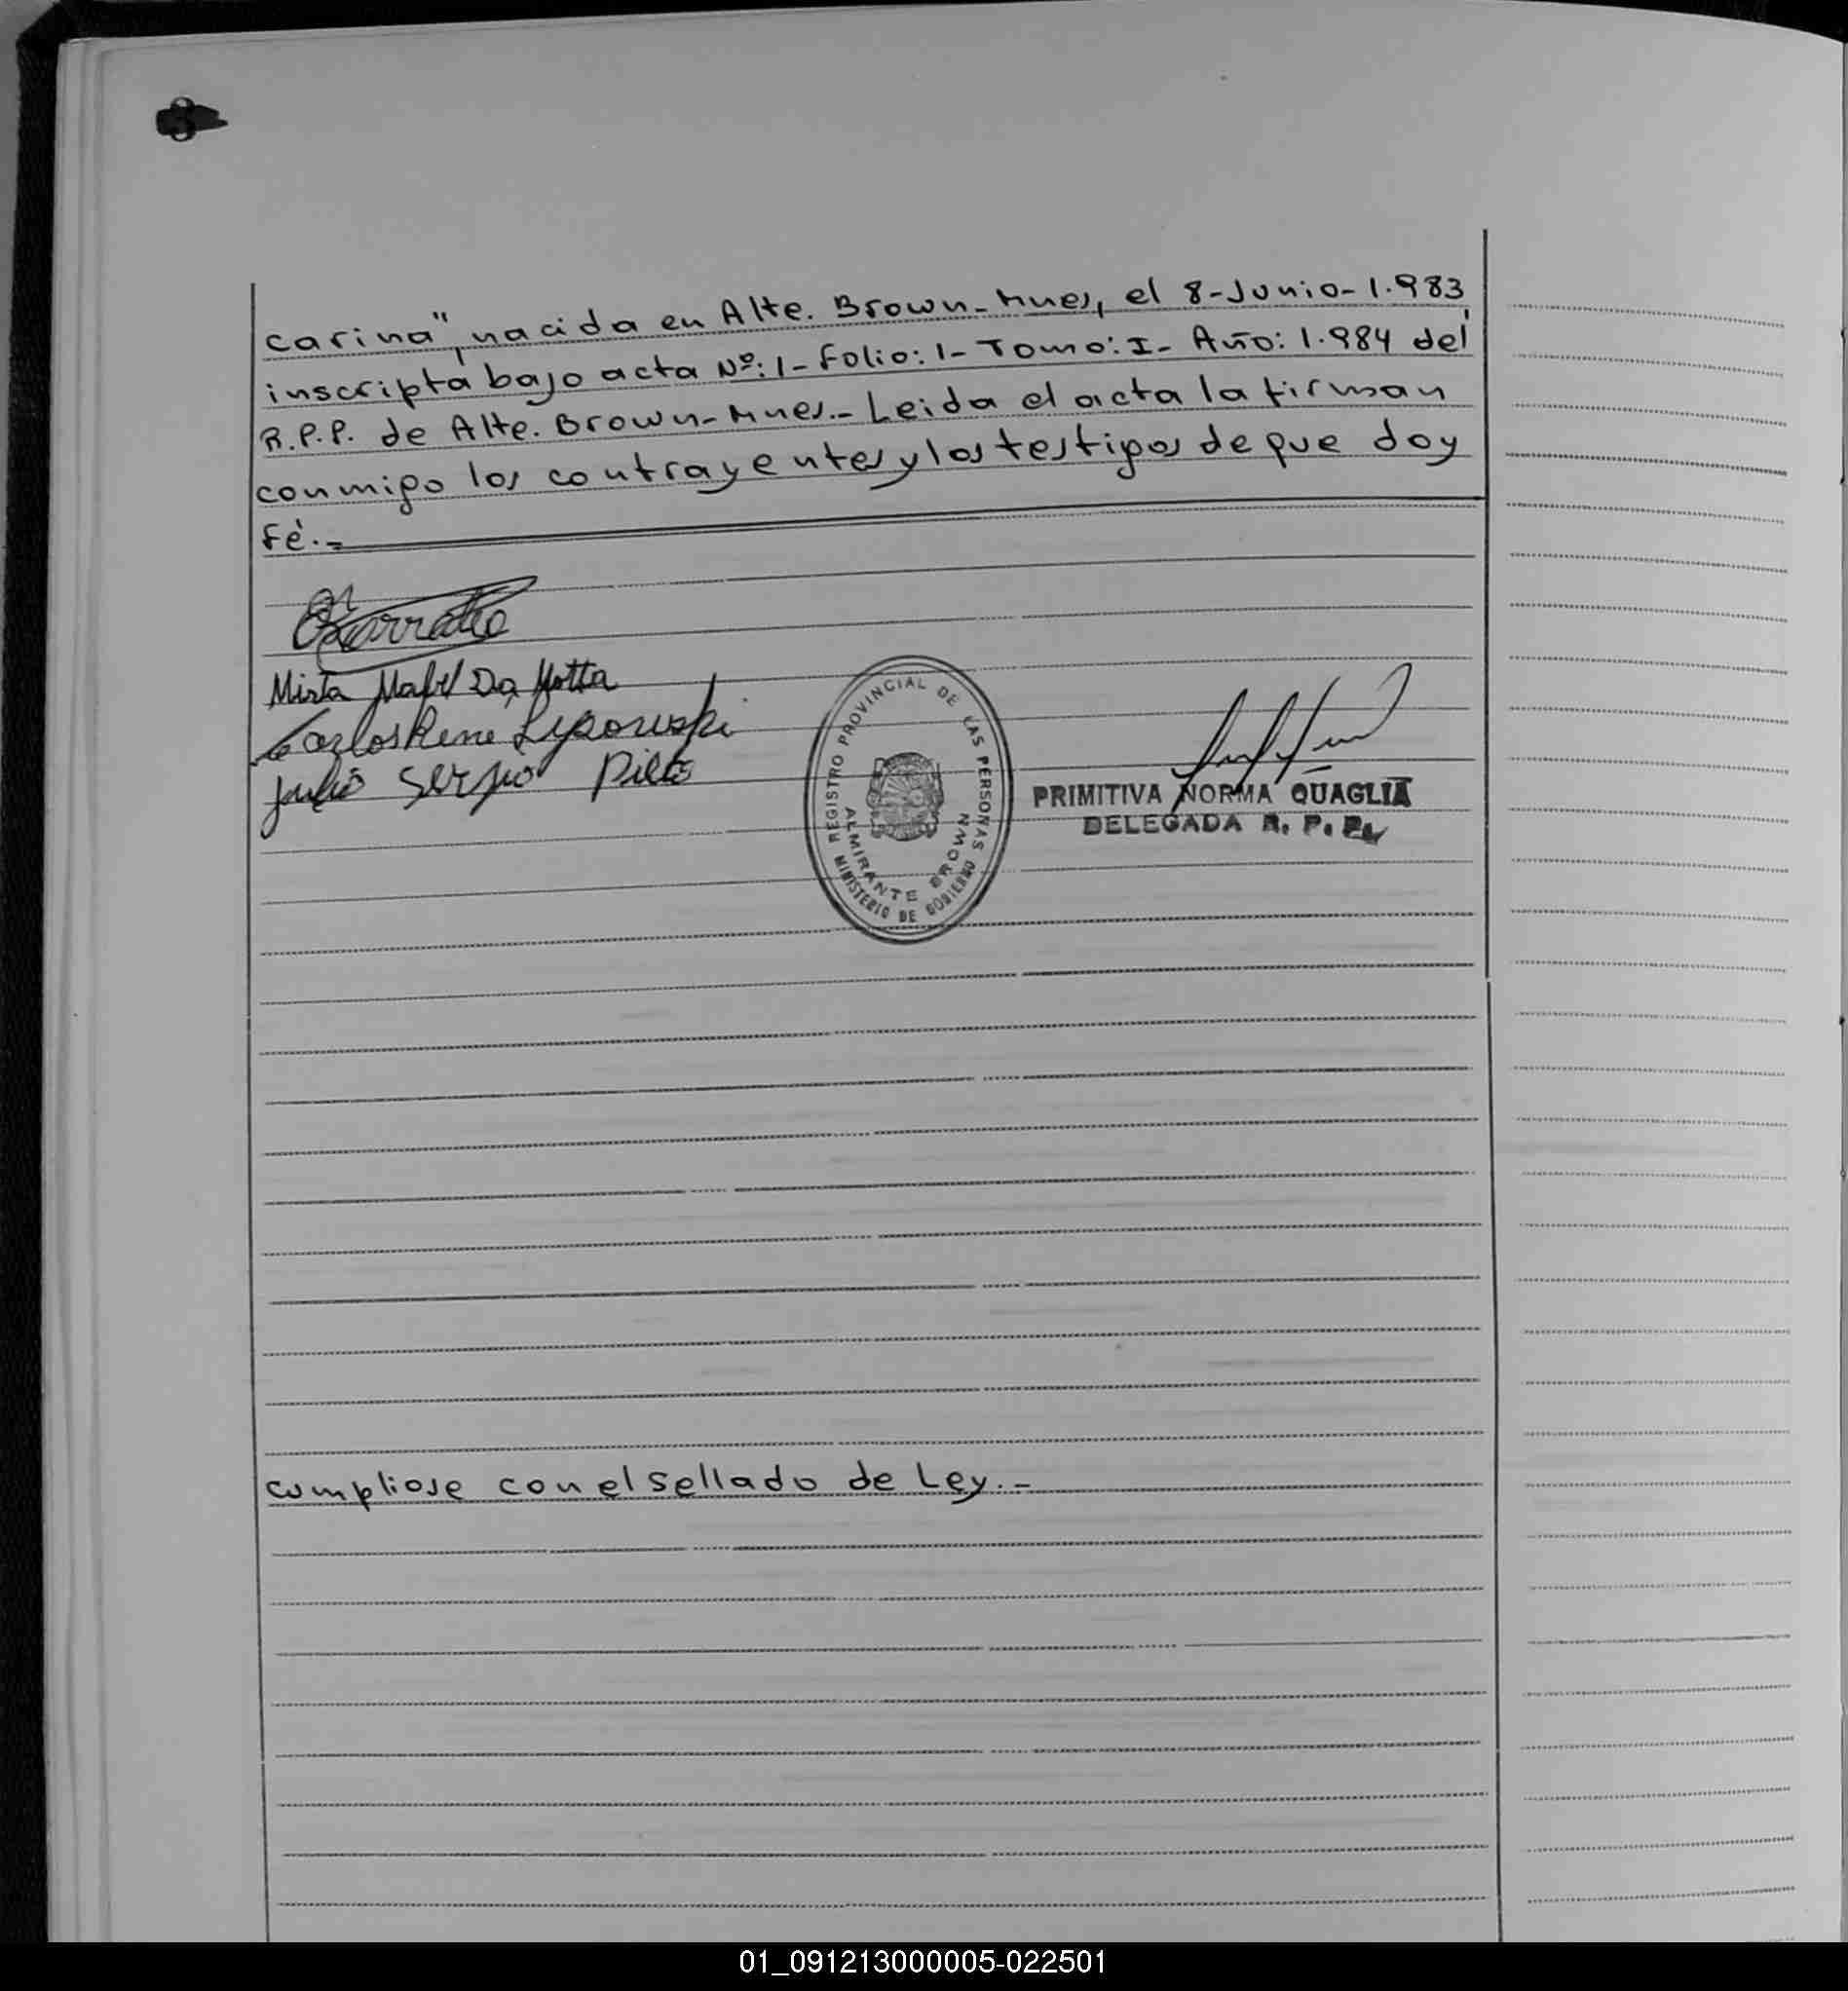 Carina", nacida en Alte. Brown-Mnes, el 8-Junio-1.983,
inscripta bajo acta Nº:1-Folio:1-Tomo:I-Año:1.984 del
R.P.P. de Alte. Brown-Mnes.- Leida el acta la firman
conmigo los contrayentes y los testigos de que doy
Fé.-
Mirta Mabel Da Motta
Carlos Rene
Julio Sergio
REGISTRO PROVINCIAL DE LAS PERSONAS
ALMIRANTE BROWN
MINISTERIO DE GOBIERNO
PRIMITIVA NORMA QUAGLIA
DELEGADA R. P. P.
cumpliose con el sellado de Ley.-
01_091213000005-022501